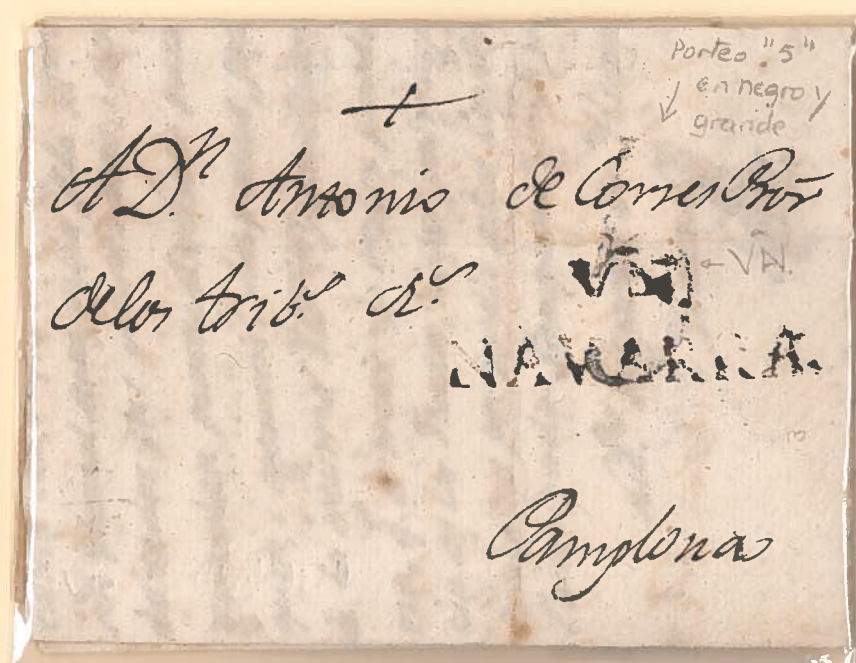 Porteo "5"
en negro y
grande
A Dⁿ. Antonio de Corres Pror̃
delos trib.ˢ R.ˢ
VÑ
← VÑ.
NAVARRA.
Pamplona